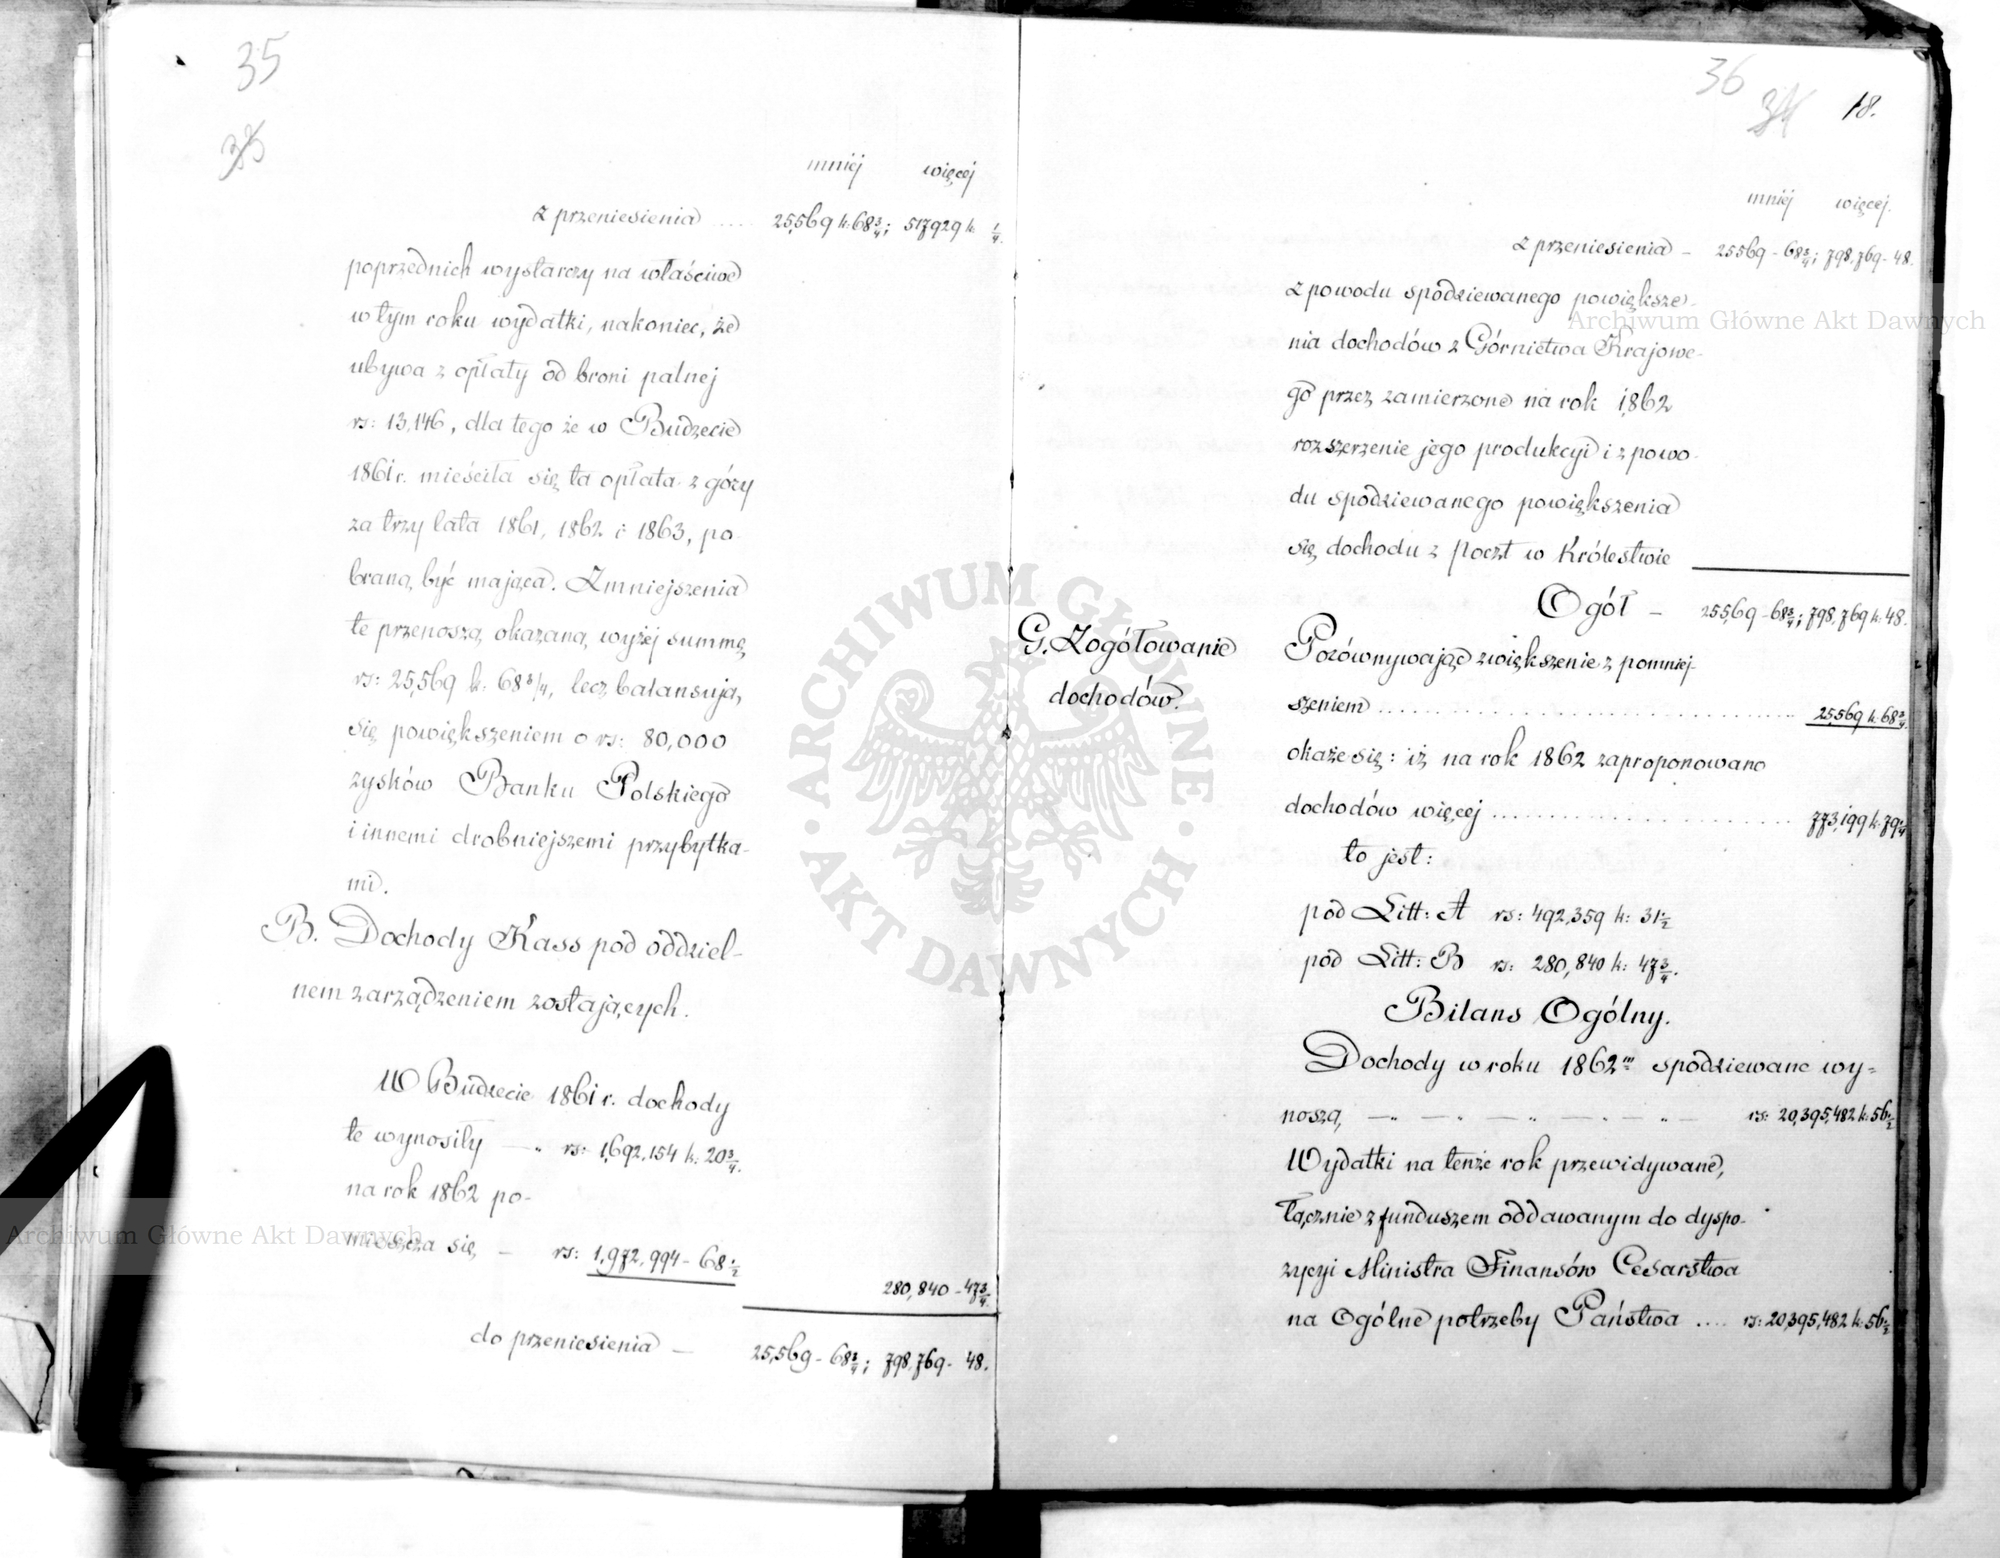 35
33
mniej więcej
z przeniesienia .... 25,569 k. 68 3/4; 517929 k. 1/4.
poprzednich wystarczy na właściwe
w tym roku wydatki, nakoniec, że
ubywa z opłaty od broni palnej
rs: 13,146, dla tego że w Budżecie
1861 r. mieściła się ta opłata z góry
za trzy lata 1861, 1862 i 1863, po-
braną być mająca. Zmniejszenia
te przenoszą okazaną wyżej summę
rs: 25,569 k. 68 3/4, lecz balansują
się powiększeniem o rs: 80,000
zysków Banku Polskiego
i innemi drobniejszemi przybytka-
mi.
B. Dochody Kass pod oddziel-
nem zarządzeniem zostających.
W Budżecie 1861 r. dochody
te wynosiły — „ rs: 1,692,154 k. 20 3/4.
na rok 1862 po-
mieszcza się — rs: 1,972,994 - 68 1/2
280,840 - 47 3/4.
do przeniesienia — 25,569 - 68 3/4; 798,769 - 48.
36
34
18.
mniej więcej.
z przeniesienia - 25569 - 68 3/4; 798,769 - 48.
z powodu spodziewanego powiększe-
nia dochodów z Górnictwa Krajowe-
go przez zamierzone na rok 1862
rozszerzenie jego produkcyi i z powo-
du spodziewanego powiększenia
się dochodu z Poczt w Królestwie
Ogół - 25569 - 68 3/4; 798,769 k. 48.
G. Zogółowanie
dochodów.
Porównywając zwiększenie z pomniej-
szeniem .......... 25,569 k. 68 3/4
okaże się: iż na rok 1862 zaproponowano
dochodów więcej .......... 773,199 k. 79 1/4
to jest:
pod Litt: A rs: 492,359 k: 31 1/2
pod Litt: B rs: 280,840 k: 47 3/4.
Bilans Ogólny.
Dochody w roku 1862m spodziewane wy=
noszą — „ — „ — „ — rs: 20,395,482 k. 56 1/2
Wydatki na tenże rok przewidywane,
łącznie z funduszem oddawanym do dyspo-
zycyi Ministra Finansów Cesarstwa
na Ogólne potrzeby Państwa .... rs: 20,395,482 k. 56 1/2
Archiwum Główne Akt Dawnych
Archiwum Główne Akt Dawnych
ARCHIWUM GŁÓWNE · AKT DAWNYCH ·